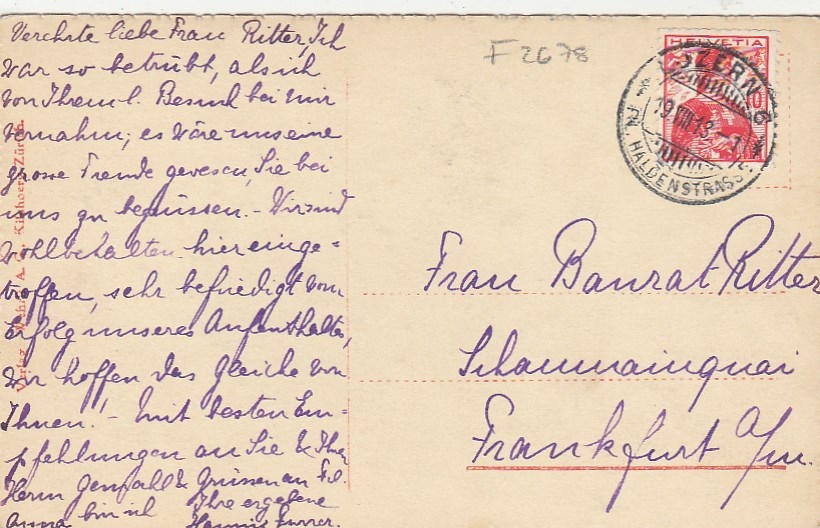 Verehrte liebe Frau Ritter, Ich
war so betrübt, als ich
von Ihrem l. Besuch bei mir
vernahm; es wäre uns eine
grosse Freude gewesen, Sie bei
uns zu begrüssen. - Wir sind
wohlbehalten hier einge=
troffen, sehr befriedigt vom
Erfolg unseres Aufenthaltes,
wir hoffen das Gleiche von
Ihnen! - Mit besten Em=
pfehlungen an Sie & Ihren
Herrn Gemahl & Grüssen an Frl.
Anna bin ich Ihre ergebene
Hanni Furrer.
F 2678
HELVETIA
10
LUZERN 6
19 VIII 13
FIL. HALDENSTRASSE
Frau Baurat Ritter
Schaumainquai
Frankfurt a/m.
Verlag Kilchberg-Zürich